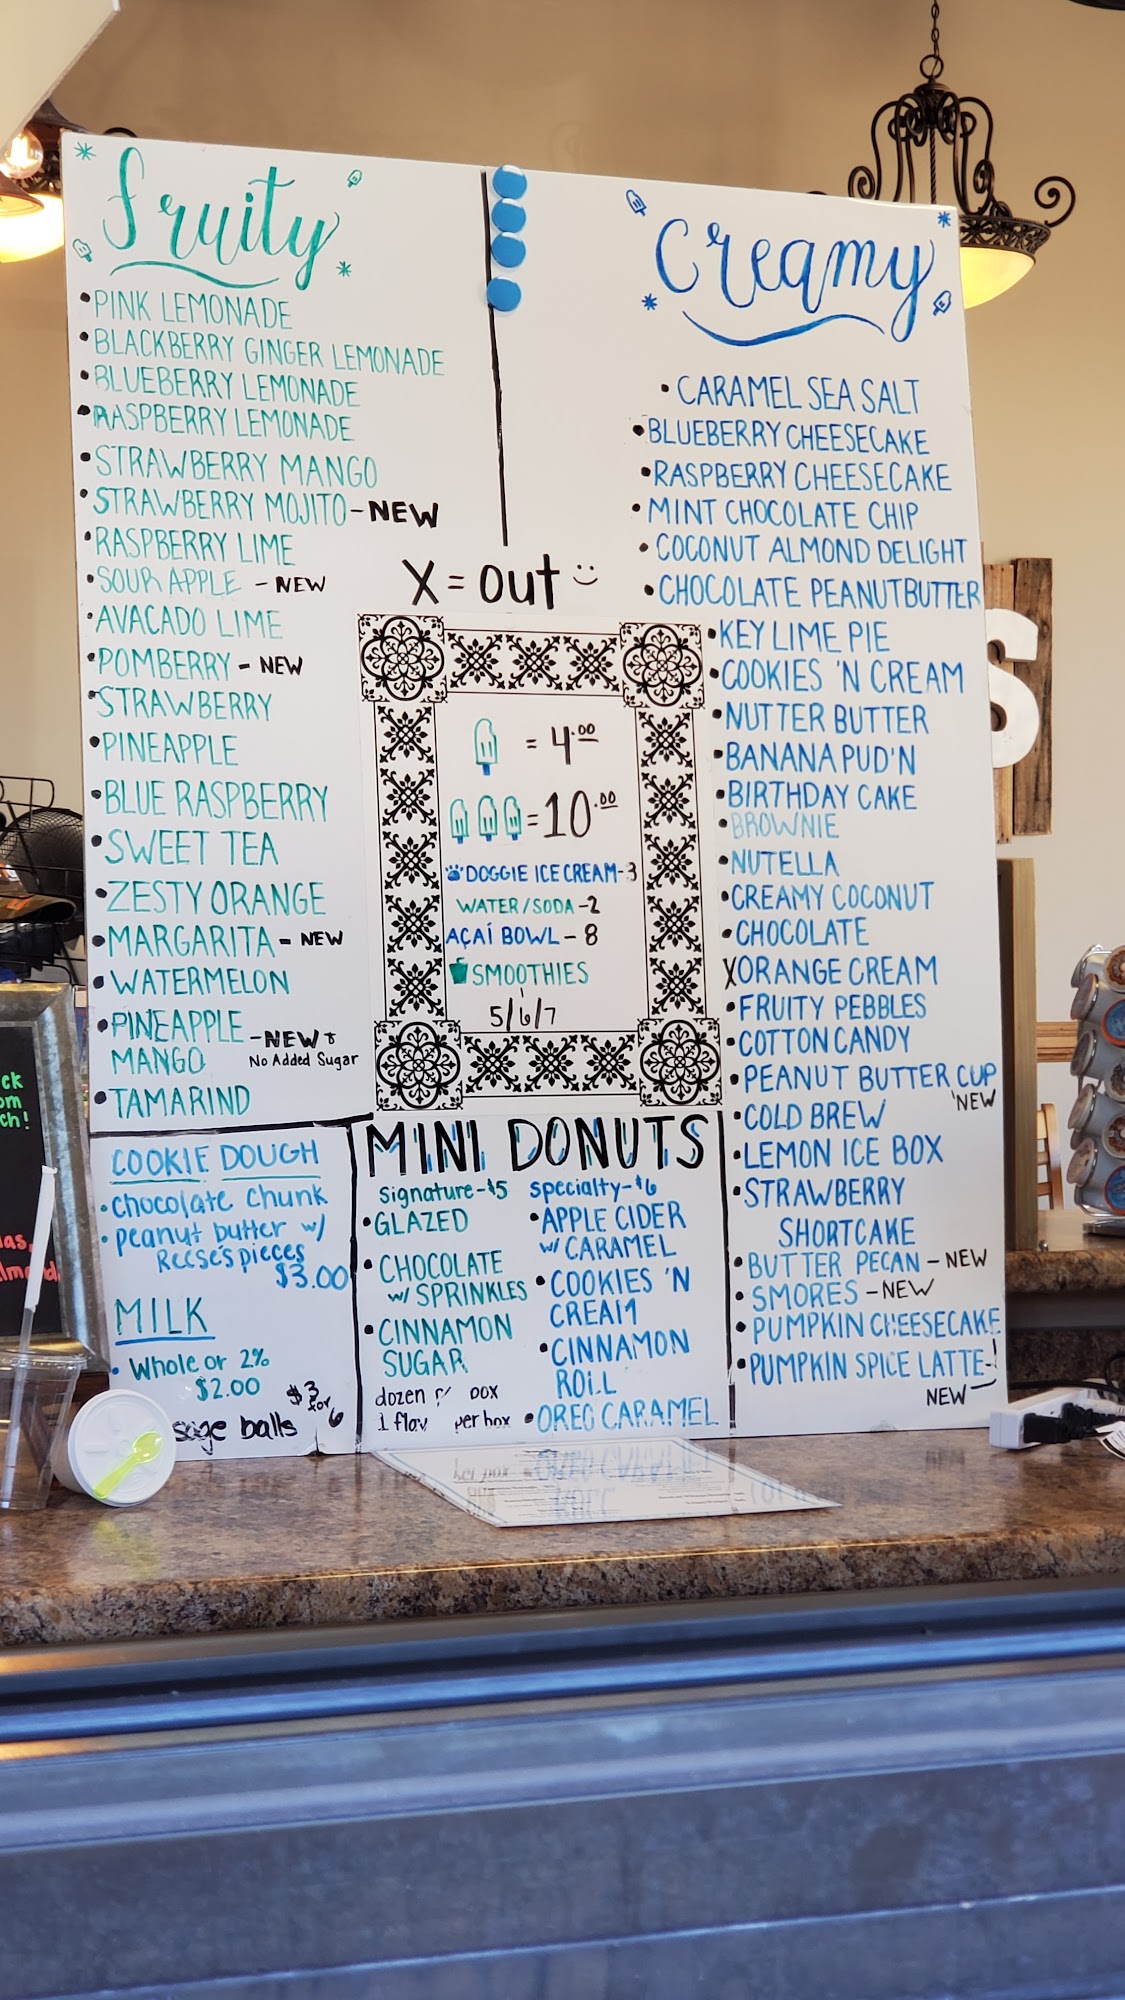 Fruity
• PINK LEMONADE
• BLACKBERRY GINGER LEMONADE
• BLUEBERRY LEMONADE
• RASPBERRY LEMONADE
• STRAWBERRY MANGO
• STRAWBERRY MOJITO - NEW
• RASPBERRY LIME
• SOUR APPLE - NEW
• AVACADO LIME
• POMBERRY - NEW
• STRAWBERRY
• PINEAPPLE
• BLUE RASPBERRY
• SWEET TEA
• ZESTY ORANGE
• MARGARITA - NEW
• WATERMELON
• PINEAPPLE - NEW +
MANGO No Added Sugar
• TAMARIND
X = Out
= 4.00
= 10.00
DOGGIE ICE CREAM - 3
WATER/SODA - 2
AÇAÍ BOWL - 8
SMOOTHIES
5/6/7
Creamy
• CARAMEL SEA SALT
• BLUEBERRY CHEESECAKE
• RASPBERRY CHEESECAKE
• MINT CHOCOLATE CHIP
• COCONUT ALMOND DELIGHT
• CHOCOLATE PEANUTBUTTER
• KEY LIME PIE
• COOKIES 'N CREAM
• NUTTER BUTTER
• BANANA PUD'N
• BIRTHDAY CAKE
• BROWNIE
• NUTELLA
• CREAMY COCONUT
• CHOCOLATE
X ORANGE CREAM
• FRUITY PEBBLES
• COTTON CANDY
• PEANUT BUTTER CUP
NEW
• COLD BREW
• LEMON ICE BOX
• STRAWBERRY
SHORTCAKE
• BUTTER PECAN - NEW
• SMORES - NEW
• PUMPKIN CHEESECAKE
• PUMPKIN SPICE LATTE - !
NEW
COOKIE DOUGH
• Chocolate Chunk
• peanut butter w/
Reese's pieces
$3.00
MILK
• Whole or 2%
$2.00
sage balls $3 for 6
MINI DONUTS
signature - $5
• GLAZED
• CHOCOLATE
w/ SPRINKLES
• CINNAMON
SUGAR
dozen
1 flav per box
specialty - $6
• APPLE CIDER
w/ CARAMEL
• COOKIES 'N
CREAM
• CINNAMON
ROLL
• OREO CARAMEL
S